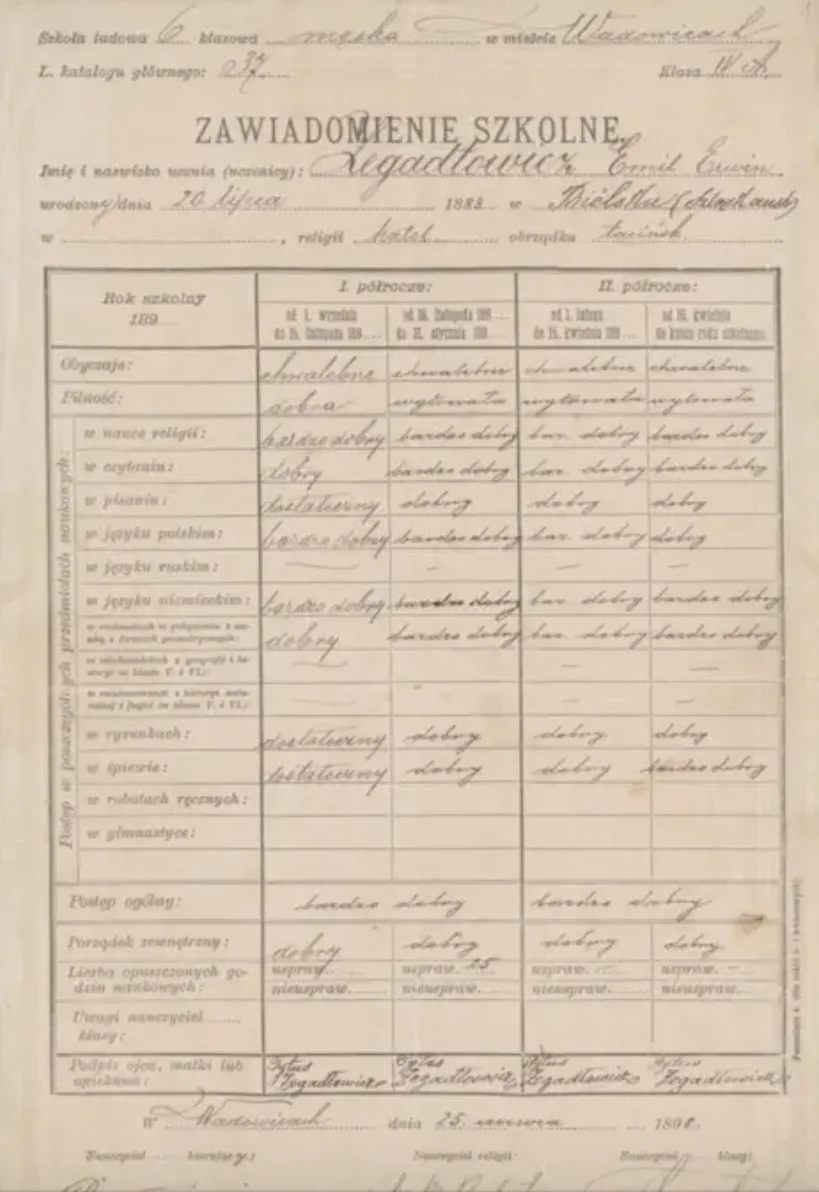 Szkoła ludowa 6 klasowa męska w mieście Wadowicach
L. katalogu głównego: 37. Klasa IV A.
ZAWIADOMIENIE SZKOLNE.
Imię i nazwisko ucznia (uczenicy): Zegadłowicz Emil Erwin
urodzony dnia 20 lipca 1888 w Bielsku
w , religii katol. obrządku łacińsk.
Rok szkolny 189
I. półrocze: II. półrocze:
od 1. września do 15. listopada 189 od 16. listopada 189 do 31. stycznia 189 od 1. lutego do 15. kwietnia 189 od 16. kwietnia do końca roku szkolnego
Obyczaje: chwalebne chwalebne chwalebne chwalebne
Pilność: dobra wytrwała wytrwała wytrwała
Postęp w poszczególnych przedmiotach naukowych:
w nauce religii: bardzo dobry bardzo dobry bar. dobry bardzo dobry
w czytaniu: dobry bardzo dobry bar. dobry bardzo dobry
w pisaniu: dostateczny dobry dobry dobry
w języku polskim: bardzo dobry bardzo dobry bar. dobry dobry
w języku ruskim: — — — —
w języku niemieckim: bardzo dobry bardzo dobry bar. dobry bardzo dobry
w rachunkach w połączeniu z nauką o formach geometrycznych: dobry bardzo dobry bar. dobry bardzo dobry
w wiadomościach z geografii i historyi (w klasie V. i VI.): — — —
w wiadomościach z historyi naturalnej i fizyki (w klasie V. i VI.): — — —
w rysunkach: dostateczny dobry dobry dobry
w śpiewie: dostateczny dobry dobry bardzo dobry
w robotach ręcznych:
w gimnastyce:
Postęp ogólny: bardzo dobry bardzo dobry
Porządek zewnętrzny: dobry dobry dobry dobry
Liczba opuszczonych godzin naukowych:
uspraw. uspraw. 25 uspraw. — uspraw. —
nieuspraw. nieuspraw. nieuspraw. nieuspraw.
Uwagi nauczyciel klasy:
Podpis ojca, matki lub opiekuna: Tytus Zegadłowicz Tytus Zegadłowicz Tytus Zegadłowicz Tytus Zegadłowicz
W Wadowicach dnia 25. czerwca 1898
Nauczyciel kierujący: Nauczyciel religii: Nauczyciel klasy: